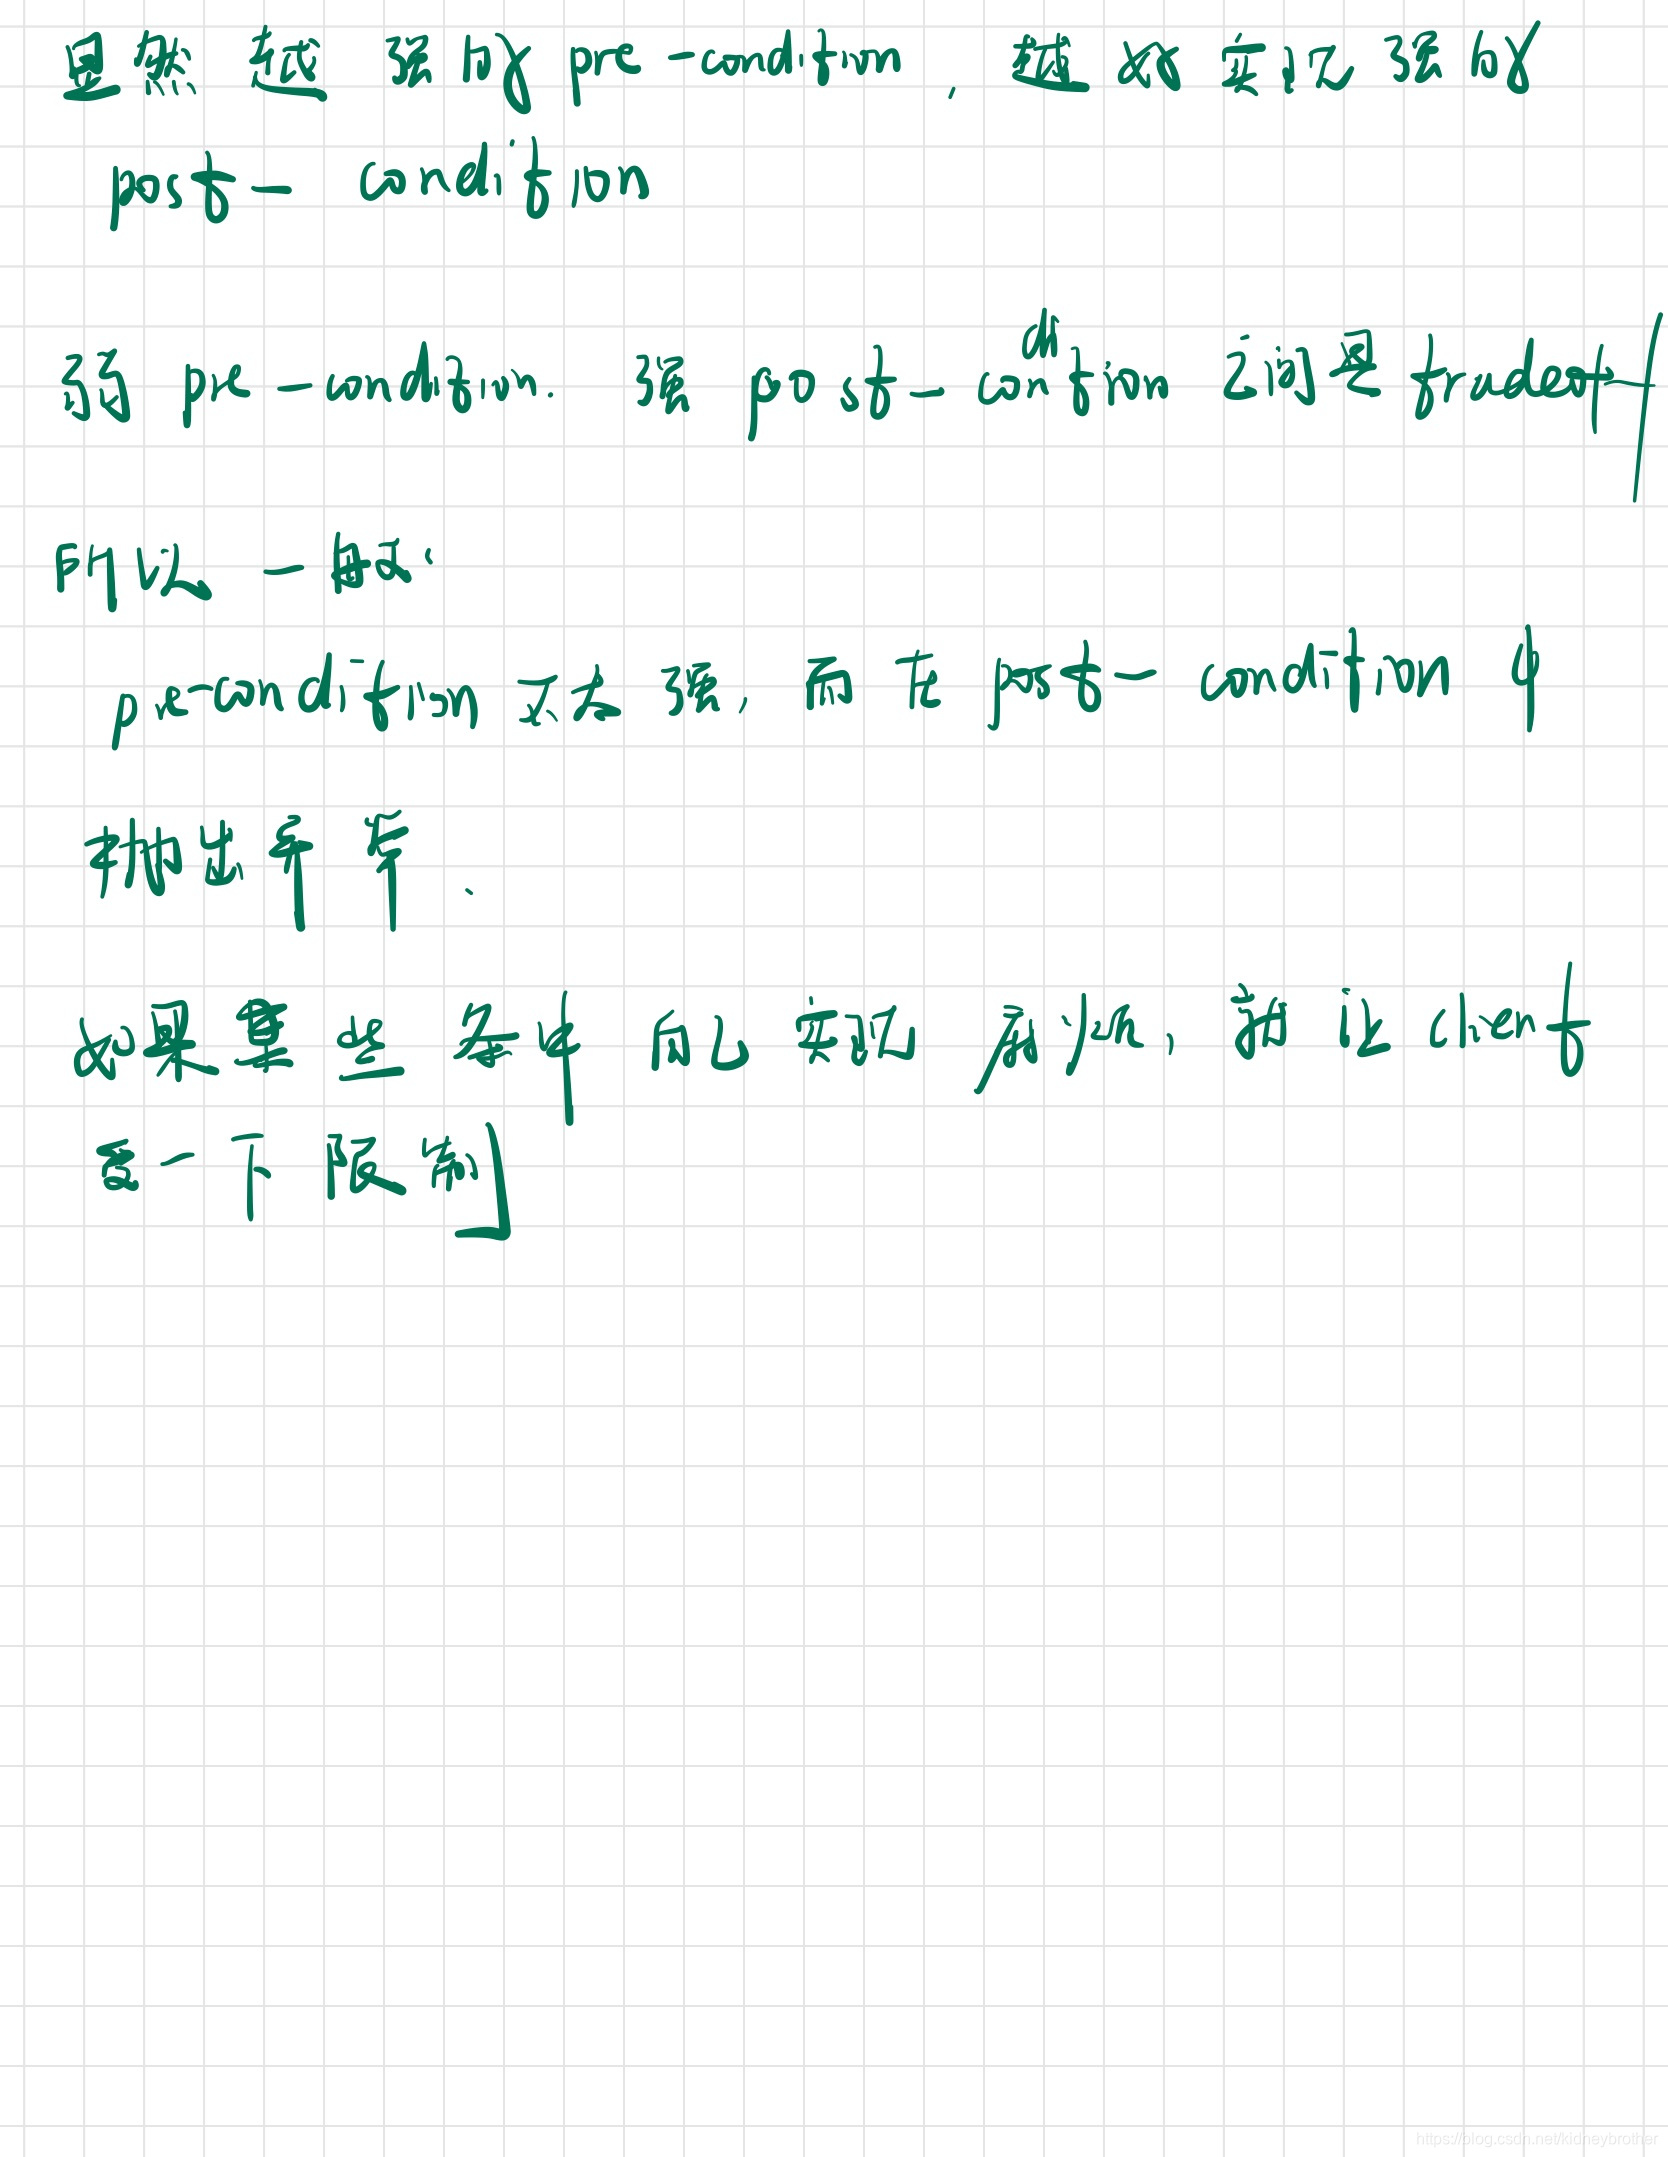 显然 越 强的 pre-condition, 越好实现强的
post- condition
弱 pre-condition. 强 post-condition 之间是 tradeoff
所以 一般:
pre-condition 不太强, 而在 post-condition 中
抛出异常.
如果某些条件 自己实现麻烦, 就让 client
受一下限制
https://blog.csdn.net/kidneybrother